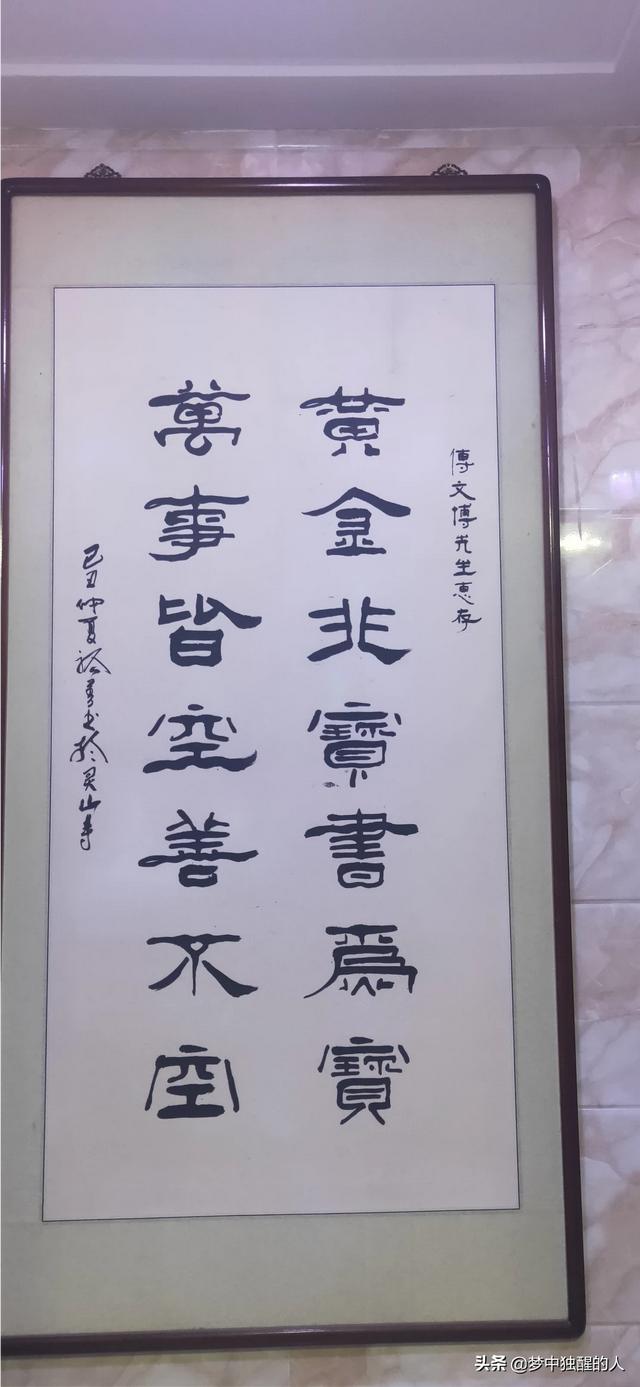 傅文博先生惠存
黄金非寶書爲寶
萬事皆空善不空
己丑仲夏 书於灵山寺
头条 @梦中独醒的人